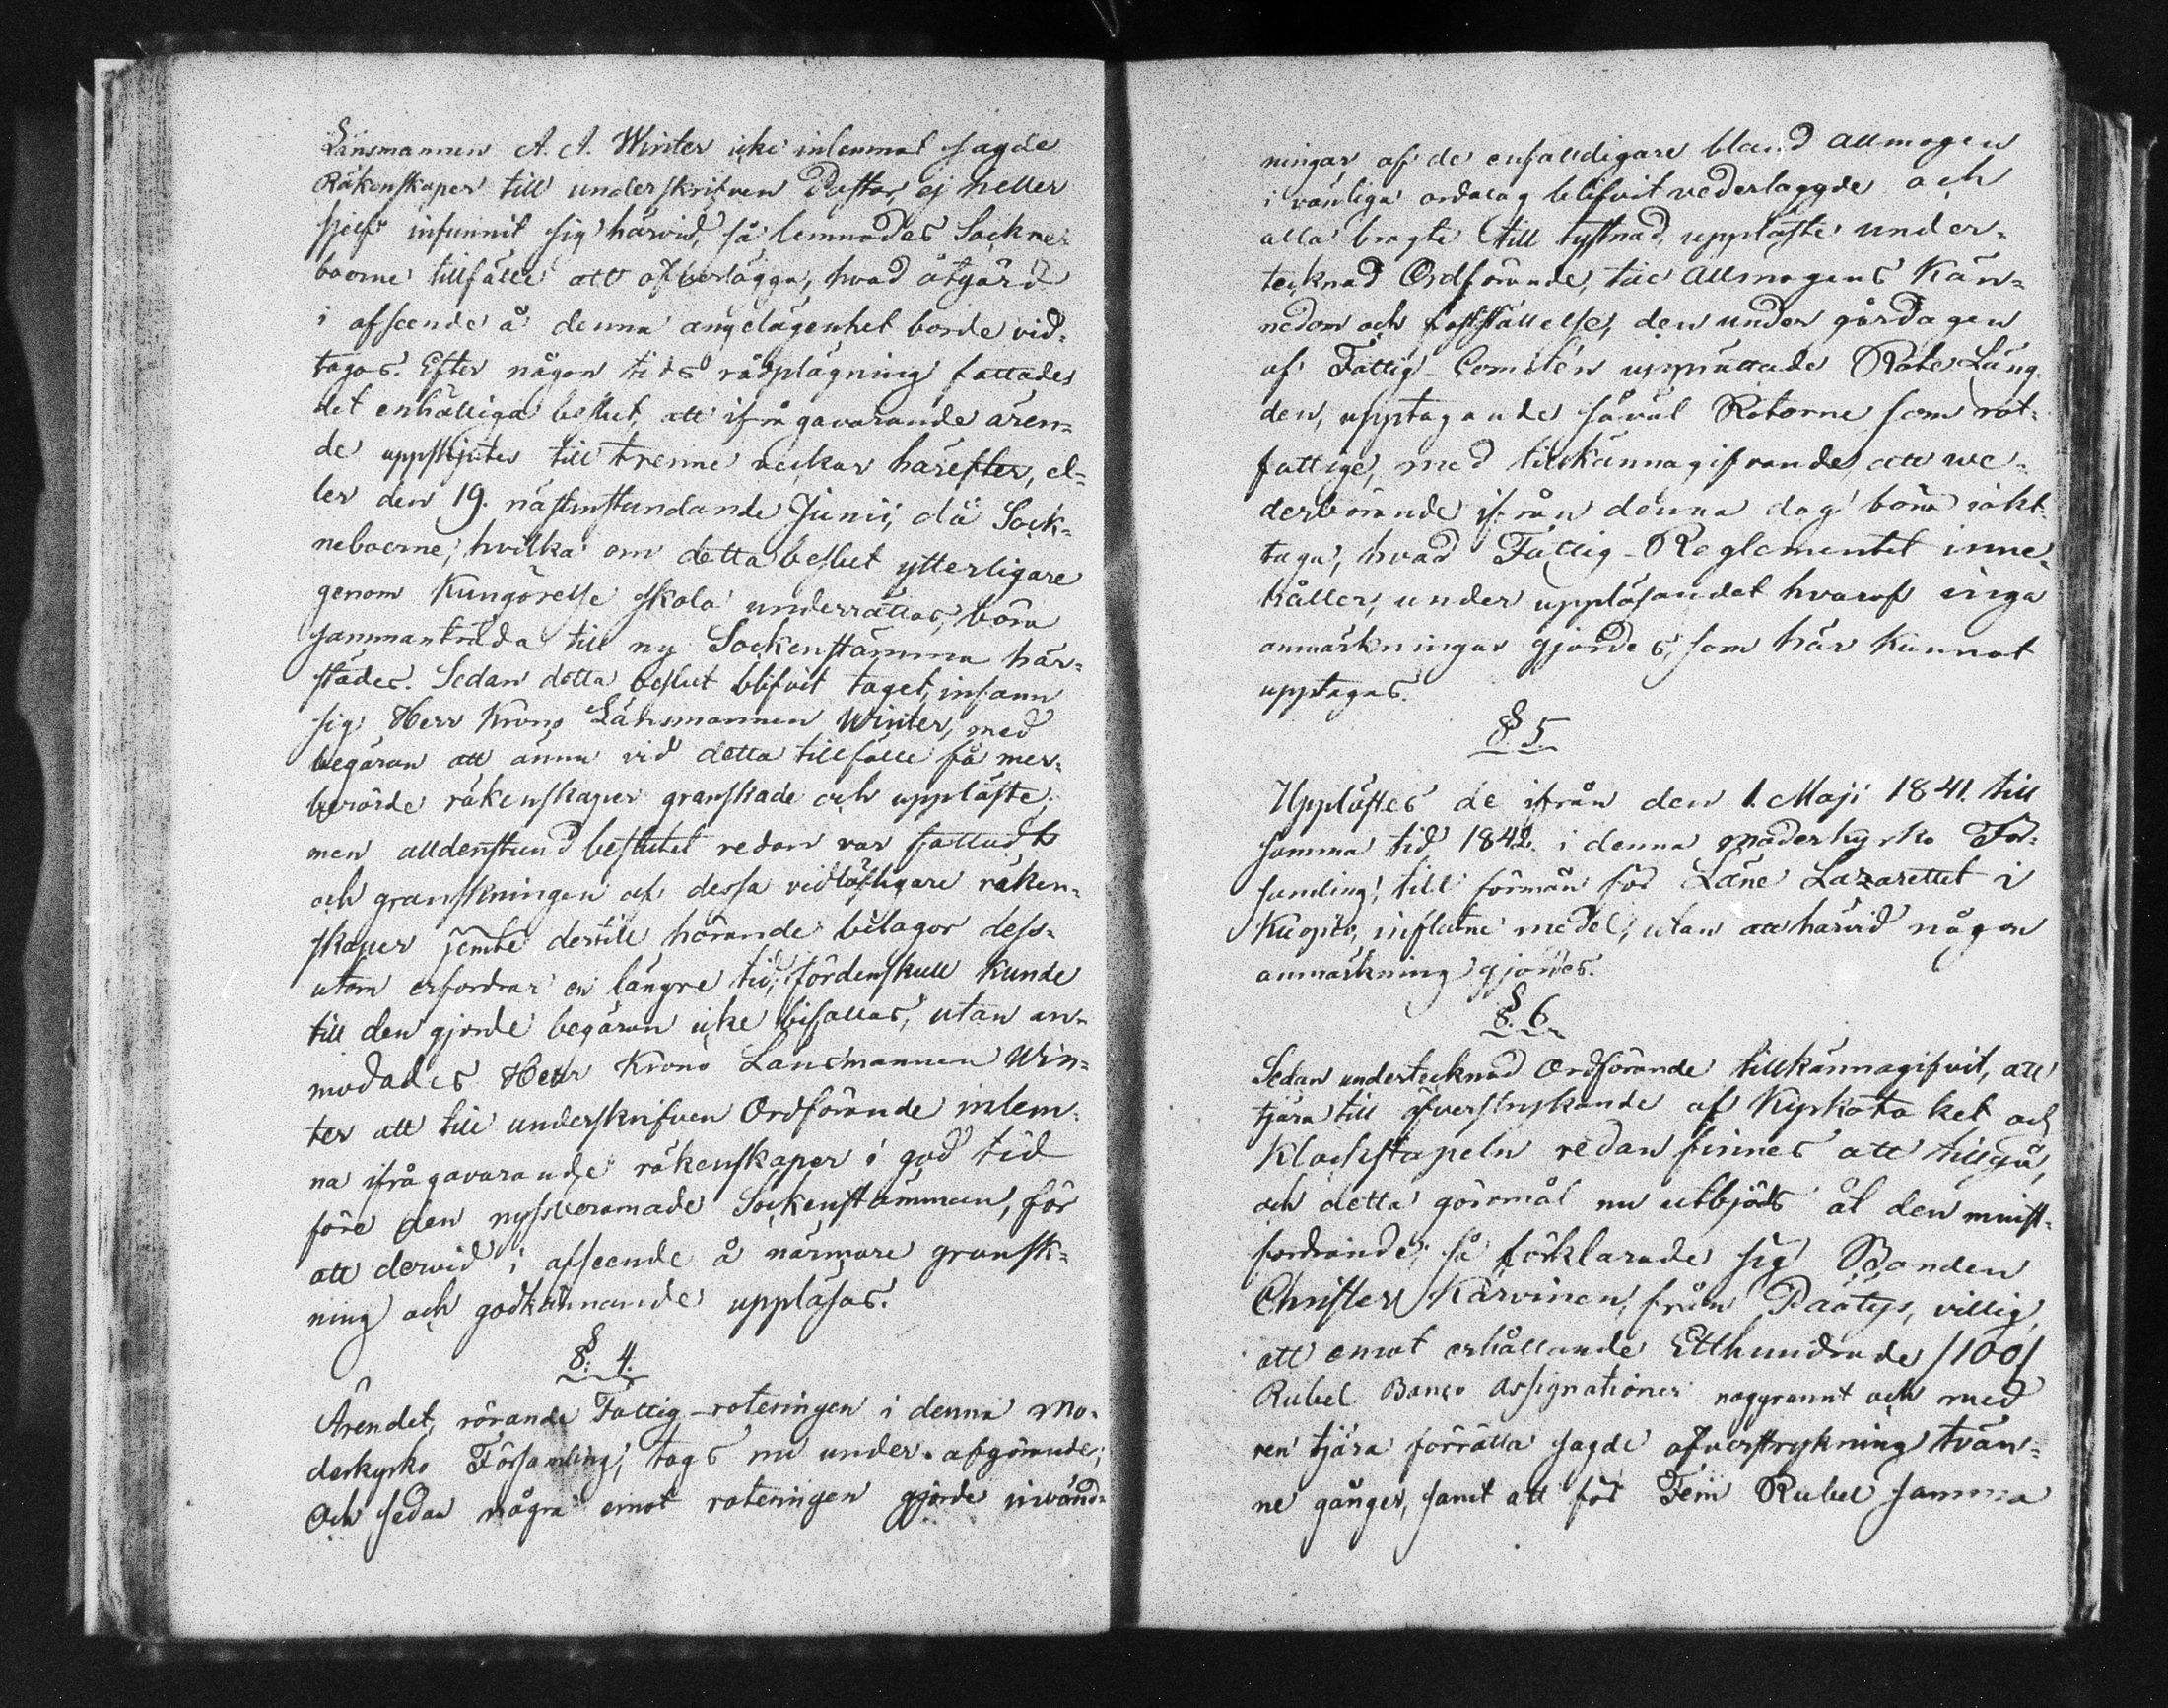 Länsmannen A. A. Winter icke inlemnat sagde
Räkenskaper till underskrifven Pastor, ej heller
sjelf infunnit sig härvid, så lemnades Sockne-
boerne tillfälle att öfverlägga, hvad åtgärd
i afseende å denna angelägenhet borde vid-
tagas. Efter någon tids rådplägning fattades
det enhälliga beslut, att ifrågavarande ären-
de uppskjutes till trenne veckor härefter, el-
ler den 19. nästinstundande Junii, då Sock-
neboerne, hvilka om detta beslut ytterligare
genom Kungörelse skola underrättas, böra
sammanträda till ny Sockenstämma här-
städes. Sedan detta beslut blifvit taget, infann
sig Herr Krono Länsmannen Winter, med
begäran att ännu vid detta tillfälle få mer-
berörde räkenskaper granskade och uppläste;
men alldenstund beslutet redan var fattadt
och granskningen af dessa vidlöftigare räken-
skaper jemte dertill hörande bilagor dess-
utom erfordrar en längre tid; fördenskull kunde
till den gjorde begäran icke bifallas, utan an-
modades Herr Krono Länsmannen Win-
ter att till underskrifven Ordförande inlem-
na ifrågavarande räkenskaper i god tid
före den nyssberamade Sockenstämman, för
att dervid i afseende å närmare gransk-
ning och godkännande uppläsas.
§. 4.
Ärendet, rörande Fattig-roteringen i denna Mo-
derkyrko Församling, togs nu under afgörande;
Och sedan några emot roteringen gjorde invänd-
ningar af de enfalldigare bland Allmogen
i vänliga ordalag blifvit vederlaggde och
alla bragte till tystnad, uppläste under-
tecknad Ordförande, till Allmogens Kän-
nedom och fastställelse, den under gårdagen
af Fattig-Comitén upprättade Rote Läng-
den, upptagande såväl Rotorne som rot-
fattige, med tillkännagifvande, att ve-
derbörande ifrån denna dag böra iakt-
taga, hvad Fattig-Reglementet inne-
håller, under uppläsandet hvaraf inga
anmärkningar gjordes, som här kunnat
upptagas.
§. 5.
Upplästes de ifrån den 1. Maji 1841. till
samma tid 1842. i denna moderkyrko För-
samling, till förmån för Läne Lazarettet i
Kuopio, influtne medel, utan att härvid någon
anmärkning gjordes.
§. 6.
Sedan undertecknad Ordförande tillkännagifvit, att
tjära till öfverstrykande af Kyrkotaket och
Klockstapeln redan finnes att tillgå,
och detta göromål nu utbjöds åt den minst-
fordrande; så förklarade sig Bonden
Christer Kärvinen, från Päätys, villig,
att emot erhållande Etthundrade /100/
Rubel Banco Assignationer noggrannt och med
ren tjära förrätta sagde öfverstrykning tvän-
ne gånger, samt att för Fem Rubel samma